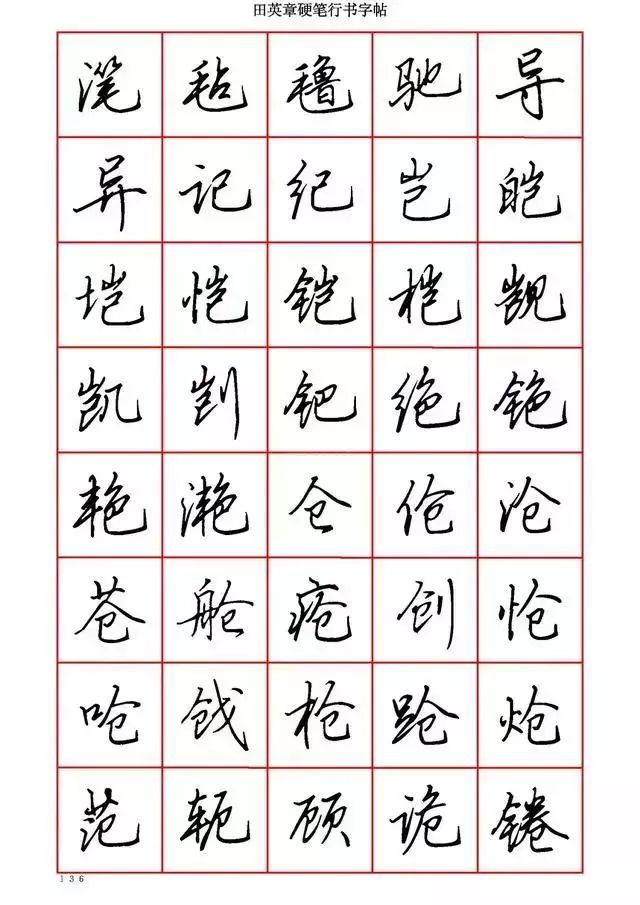 田英章硬笔行书字帖
滗毡氇驰导
异记纪岂皑
垲恺铠桤觊
凯剀钯绝铯
艳滟仓伧沧
苍舱疮创怆
呛戗枪跄炝
范轭顾诡锩
136